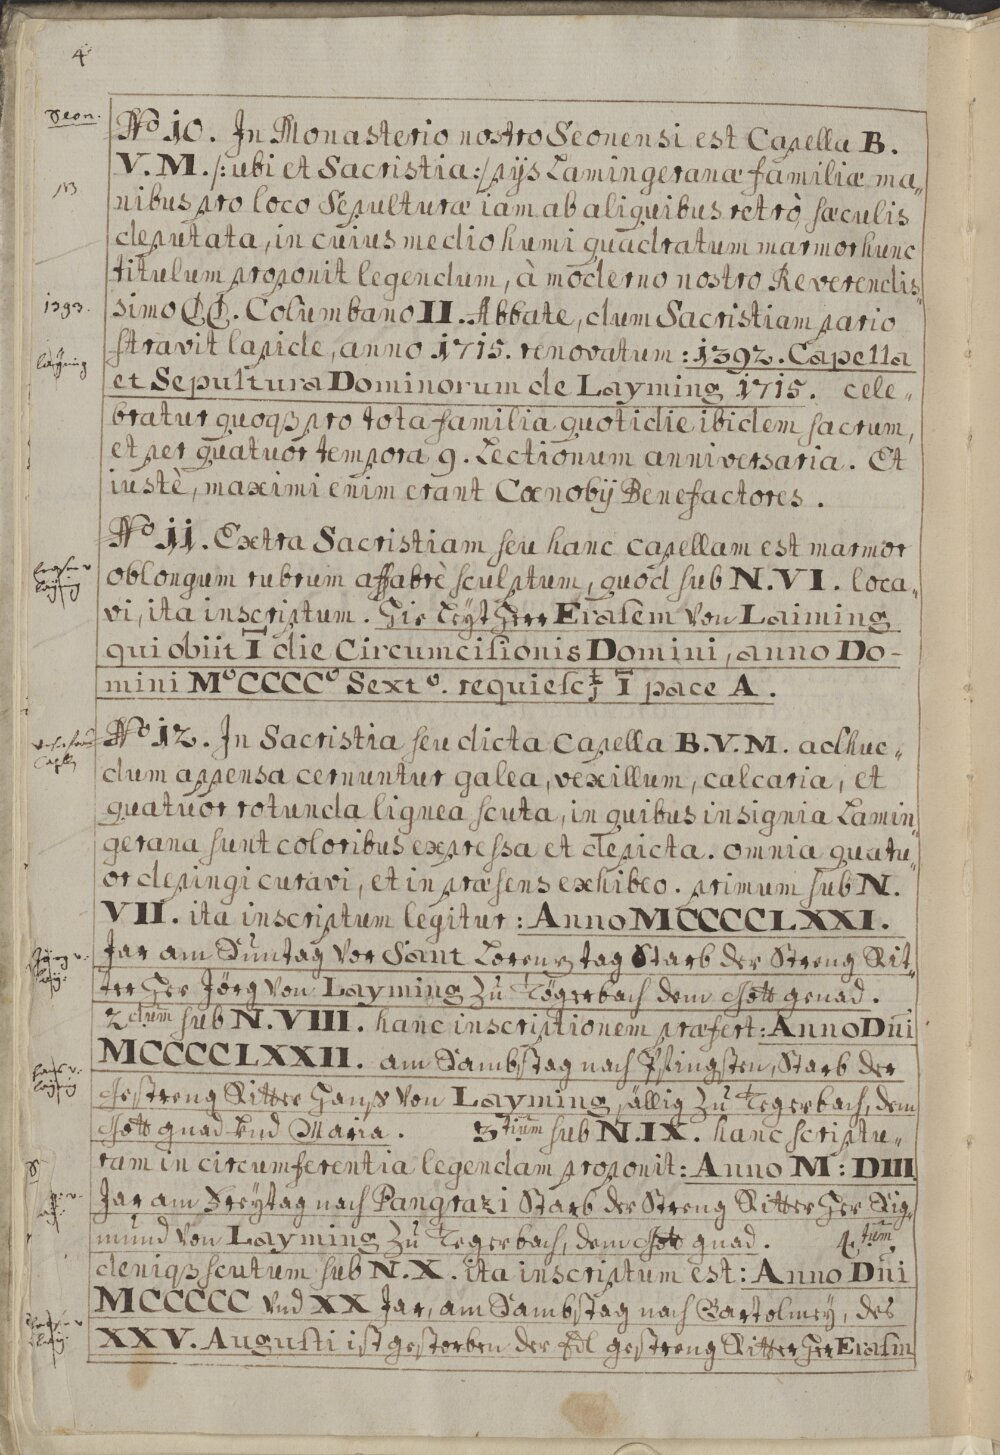 4
Seon.
Nº 10. In Monasterio nostro Seonensi est Capella B.
V. M. /: ubi et Sacristia :/ pijs Lamingeranæ familiæ ma„
NB
nibus pro loco Sepulturæ iam ab aliquibus retrò sæculis
deputata, in cuius medio humi quadratum marmor hunc
titulum proponit legendum, à moderno nostro Reverendis„
1393.
simo DD. Columbano II. Abbate, dum Sacristiam pario
stravit lapide, anno 1715. renovatum: 1392. Capella
layming
et Sepultura Dominorum de Layming 1715. cele„
bratur quoqȝ pro tota familia quotidie ibidem sacrum,
et per quatuor tempora 9. Lectionum anniversaria. Et
iustè, maximi enim erant Cœnobij Benefactores.
Nº 11. Extra Sacristiam seu hanc capellam est marmor
oblongum rubrum affabrè sculptum, quod sub N. VI. loca„
vi, ita inscriptum. Hie leÿt Herr Erasem von Laiming
qui obiit Ī die Circumcisionis Domini, anno Do-
mini MºCCCCº Sextº. requiesc Ī pace A.
Nº 12. In Sacristia seu dicta Capella B. V. M. adhuc„
dum appensa cernuntur galea, vexillum, calcaria, et
quatuor rotunda lignea scuta, in quibus insignia Lamin„
gerana sunt coloribus expressa et depicta. omnia quatu„
or depingi curavi, et in præsens exhibeo. primum sub N.
VII. ita inscriptum legitur: Anno MCCCCLXXI.
Jar am Suntag vor Sant Lorenz tag Starb der Streng Rit„
ter Her Jörg von Layming zu Tögerbach dem Gott genad.
2dum sub N. VIII. hanc inscriptionem præfert: Anno Dñi
MCCCCLXXII. am Sambstag nach Pfingsten, Starb der
Gestreng Ritter Hanß von Layming, sällig zu Tegerbach, dem
Gott gnad und Maria. 3tium sub N. IX. hanc scriptu„
ram in circumferentia legendam proponit: Anno M: DIII
Jar am Freÿtag nach Pangrazi Starb der Streng Ritter Her Sig„
mund von Layming zu Tegerbach, dem Gott gnad. 4tum
deniqȝ scutum sub N. X. ita inscriptum est: Anno Dñi
MCCCCC vnd XX Jar, am Sambstag nach Bartolmeÿ, des
XXV. Augusti ist gestorben der Edl gestreng Ritter Her Erasm